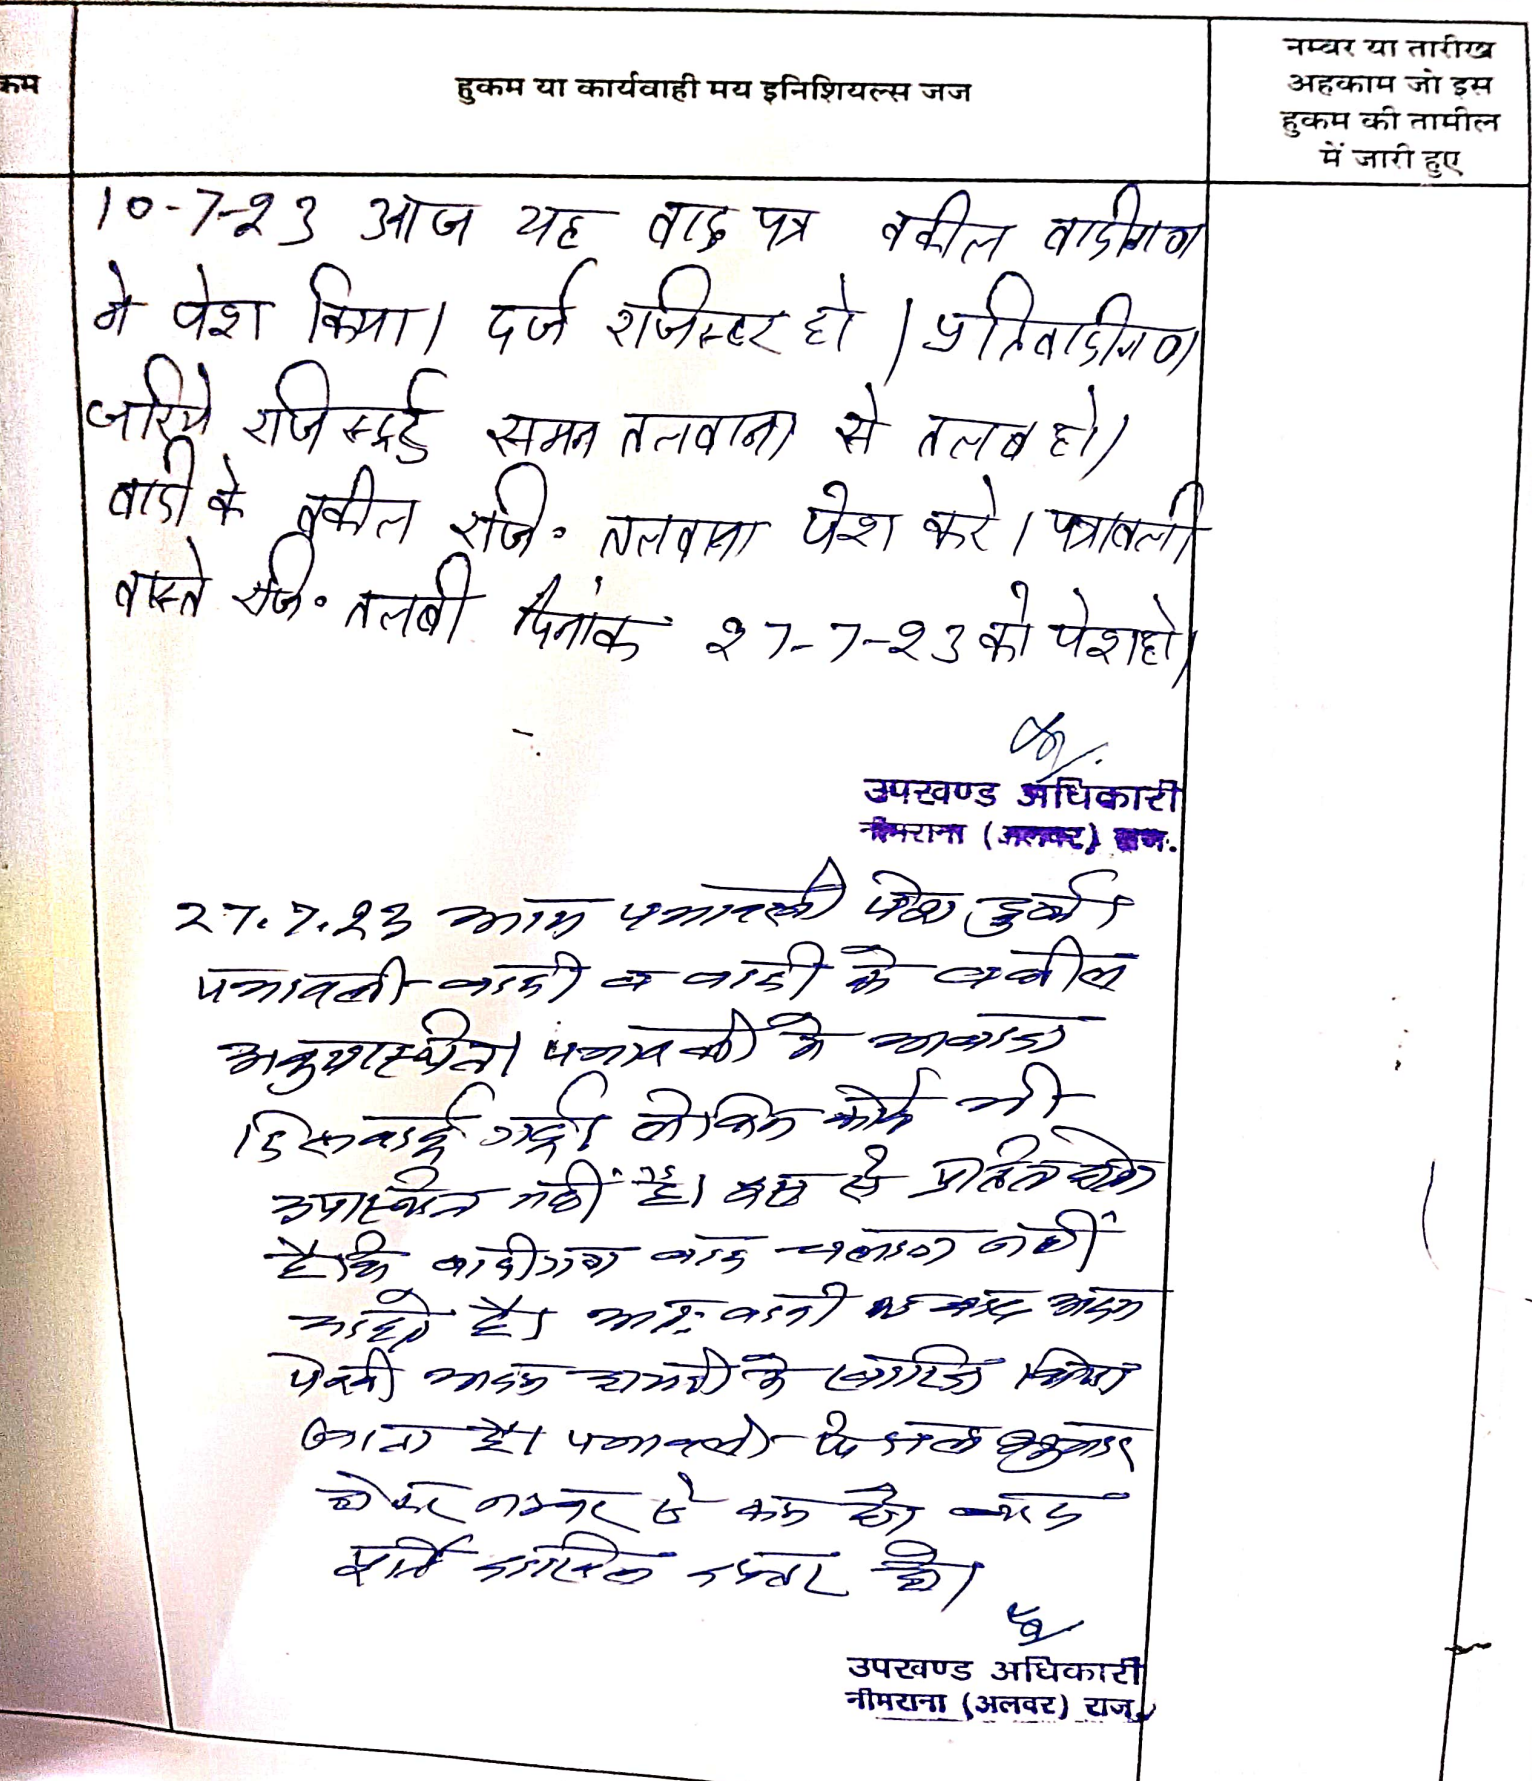 कम
हुकम या कार्यवाही मय इनिशियल्स जज
नम्बर या तारीख
अहकाम जो इस
हुकम की तामील
में जारी हुए
10-7-23 आज यह वाद पत्र वकील वादीगण
ने पेश किया। दर्ज रजिस्टर हो। प्रतिवादीगण
जरिये रजिस्टर्ड समन तलवाना से तलब हो।
वादी के वकील रजि. तलवाना पेश करे। पत्रावली
वास्ते रजि. तलबी दिनांक 27-7-23 को पेश हो।
उपखण्ड अधिकारी
नीमराना (अलवर) राज.
27.7.23 आज पत्रावली पेश हुई।
पत्रावली वादी व वादी के वकील
अनुपस्थित। पत्रावली में आवाज
दिलवाई गई। लेकिन कोई भी
उपस्थित नहीं है। प्रतित होता
है कि वादीगण वाद चलाना नहीं
चाहते है। अतः वादी का वाद अदम
पेशी अदम हाजरी में खारिज किया
जाता है। पत्रावली फैसल शुमार
होकर नम्बर से कम हो। बाद
दाखिल दफ्तर हो।
उपखण्ड अधिकारी
नीमराना (अलवर) राज.